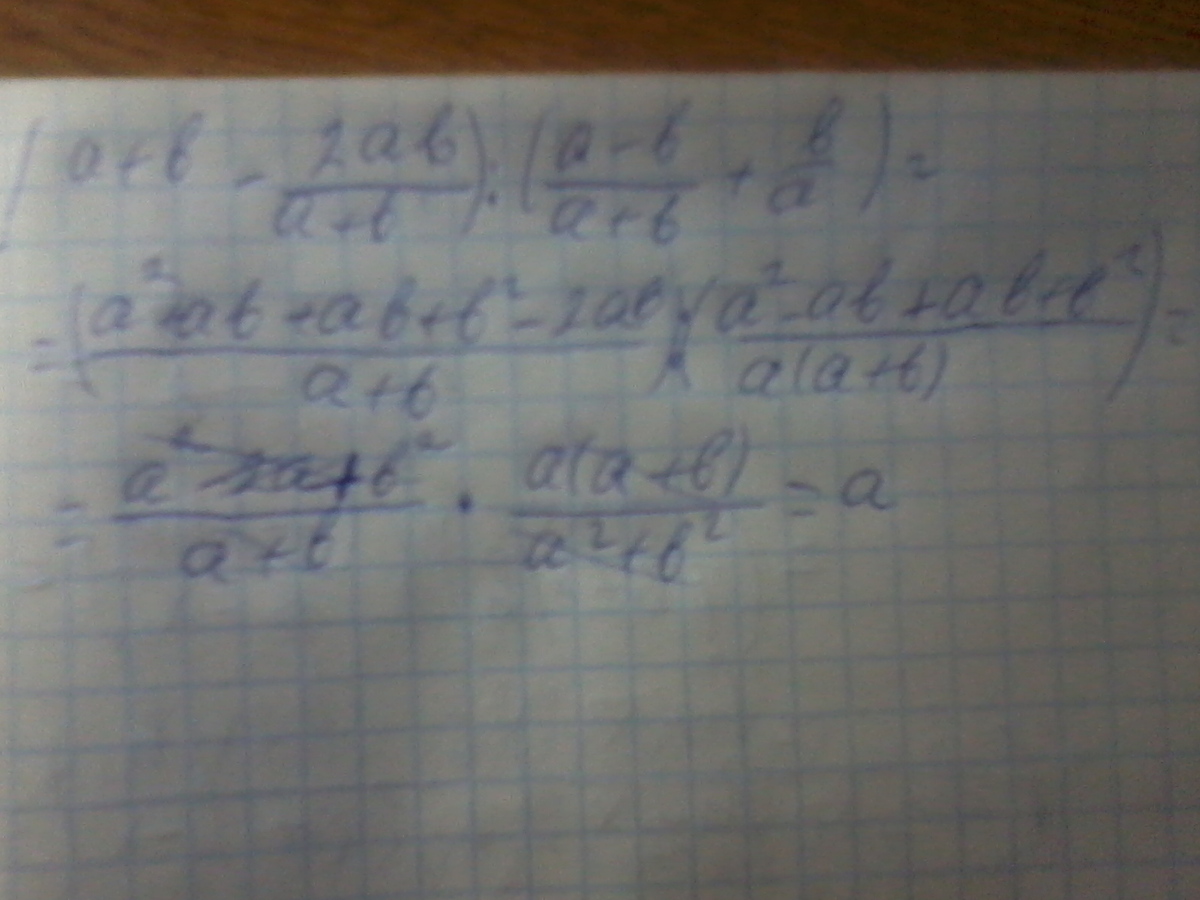 (a+b - 2ab/(a+b)) : ((a-b)/(a+b) + b/a) =
= ((a²+ab+ab+b²-2ab)/(a+b)) : ((a²-ab+ab+b²)/(a(a+b))) =
= (a²+b²)/(a+b) · a(a+b)/(a²+b²) = a